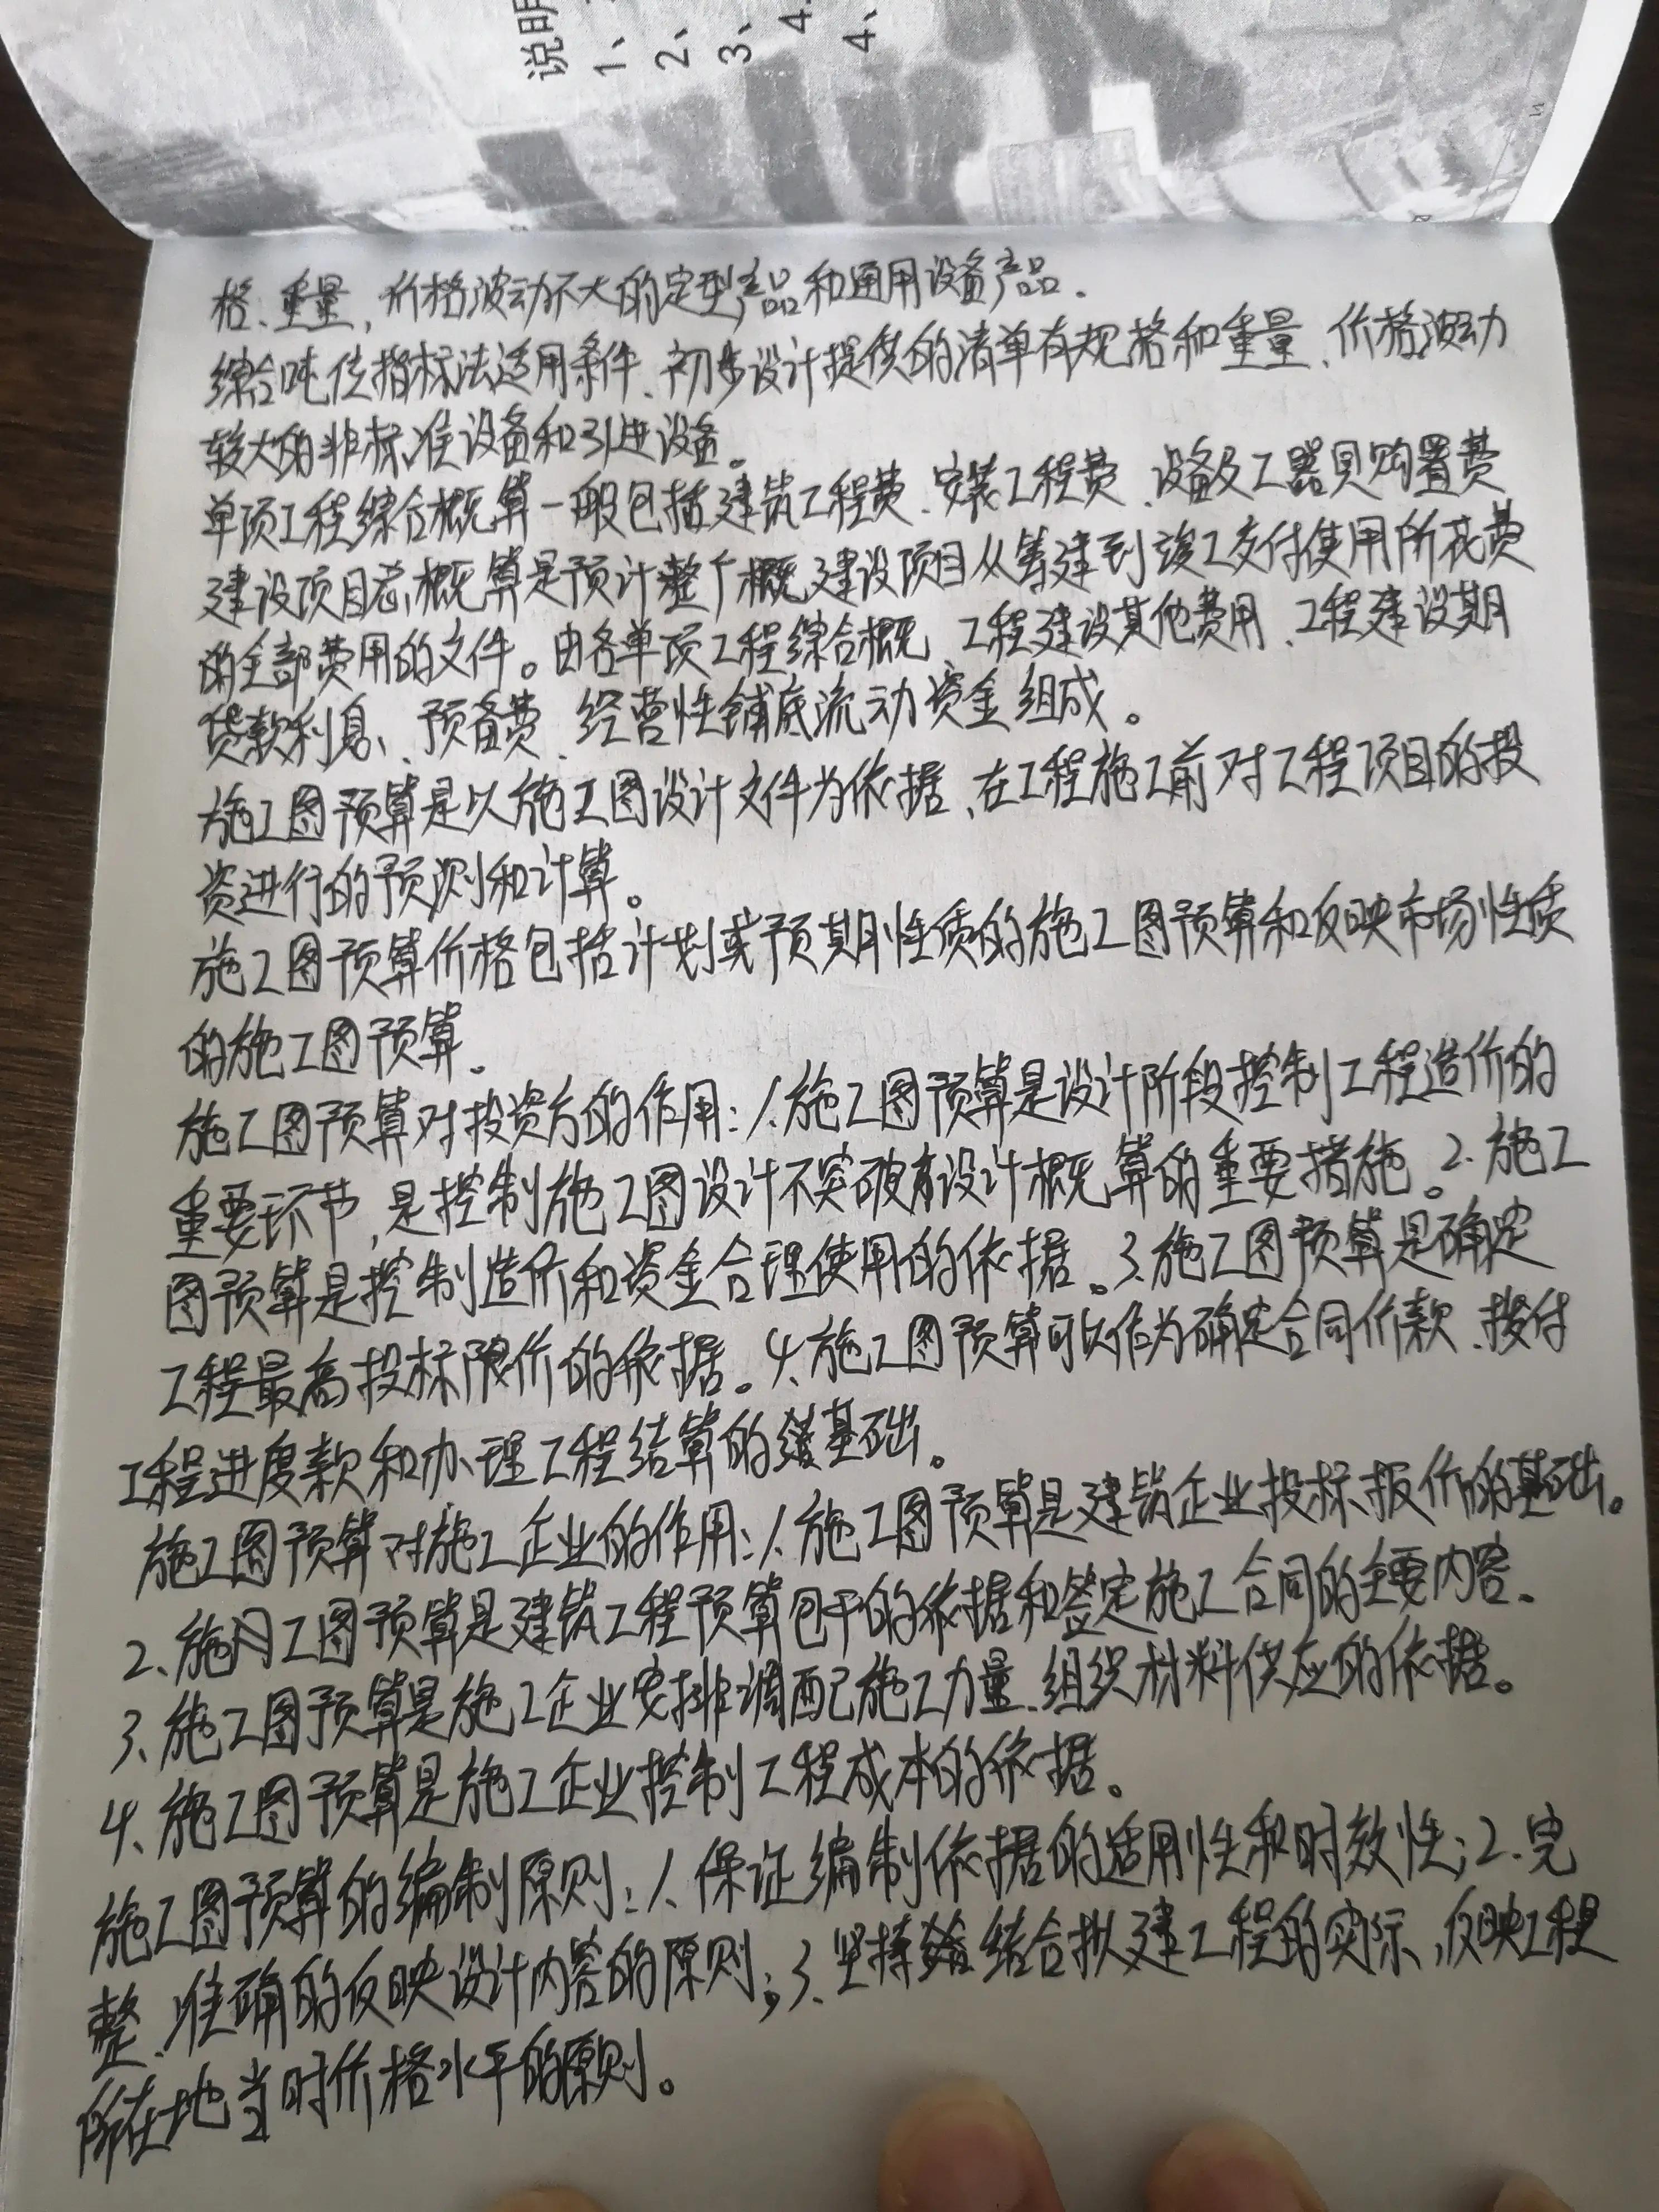 说明
1、
2、
3、
4.
4、
格、重量,价格波动不大的定型产品和通用设备产品.
综合吨位指标法适用条件、初步设计提供的清单有规格和重量、价格波动
较大的非标准设备和引进设备。
单项工程综合概算一般包括建筑工程费、安装工程费、设备及工器具购置费
建设项目总概算是预计整个概建设项目从筹建到竣工交付使用所花费
的全部费用的文件。由各单项工程综合概、工程建设其他费用、工程建设期
贷款利息、预备费、经营性铺底流动资金组成。
施工图预算是以施工图设计文件为依据、在工程施工前对工程项目的投
资进行的预测和计算。
施工图预算价格包括计划或预期性质的施工图预算和反映市场性质
的施工图预算.
施工图预算对投资方的作用:1.施工图预算是设计阶段控制工程造价的
重要环节,是控制施工图设计不突破设计概算的重要措施。2.施工
图预算是控制造价和资金合理使用的依据。3.施工图预算是确定
工程最高投标限价的依据。4、施工图预算可以作为确定合同价款、拨付
工程进度款和办理工程结算的基础。
施工图预算对施工企业的作用:1.施工图预算是建筑企业投标报价的基础。
2、施工图预算是建筑工程预算包干的依据和签定施工合同的主要内容.
3、施工图预算是施工企业安排调配施工力量、组织材料供应的依据。
4、施工图预算是施工企业控制工程成本的依据。
施工图预算的编制原则:1.保证编制依据的适用性和时效性;2.完
整、准确的反映设计内容的原则;3、坚持结合拟建工程的实际、反映工程
所在地当时价格水平的原则。